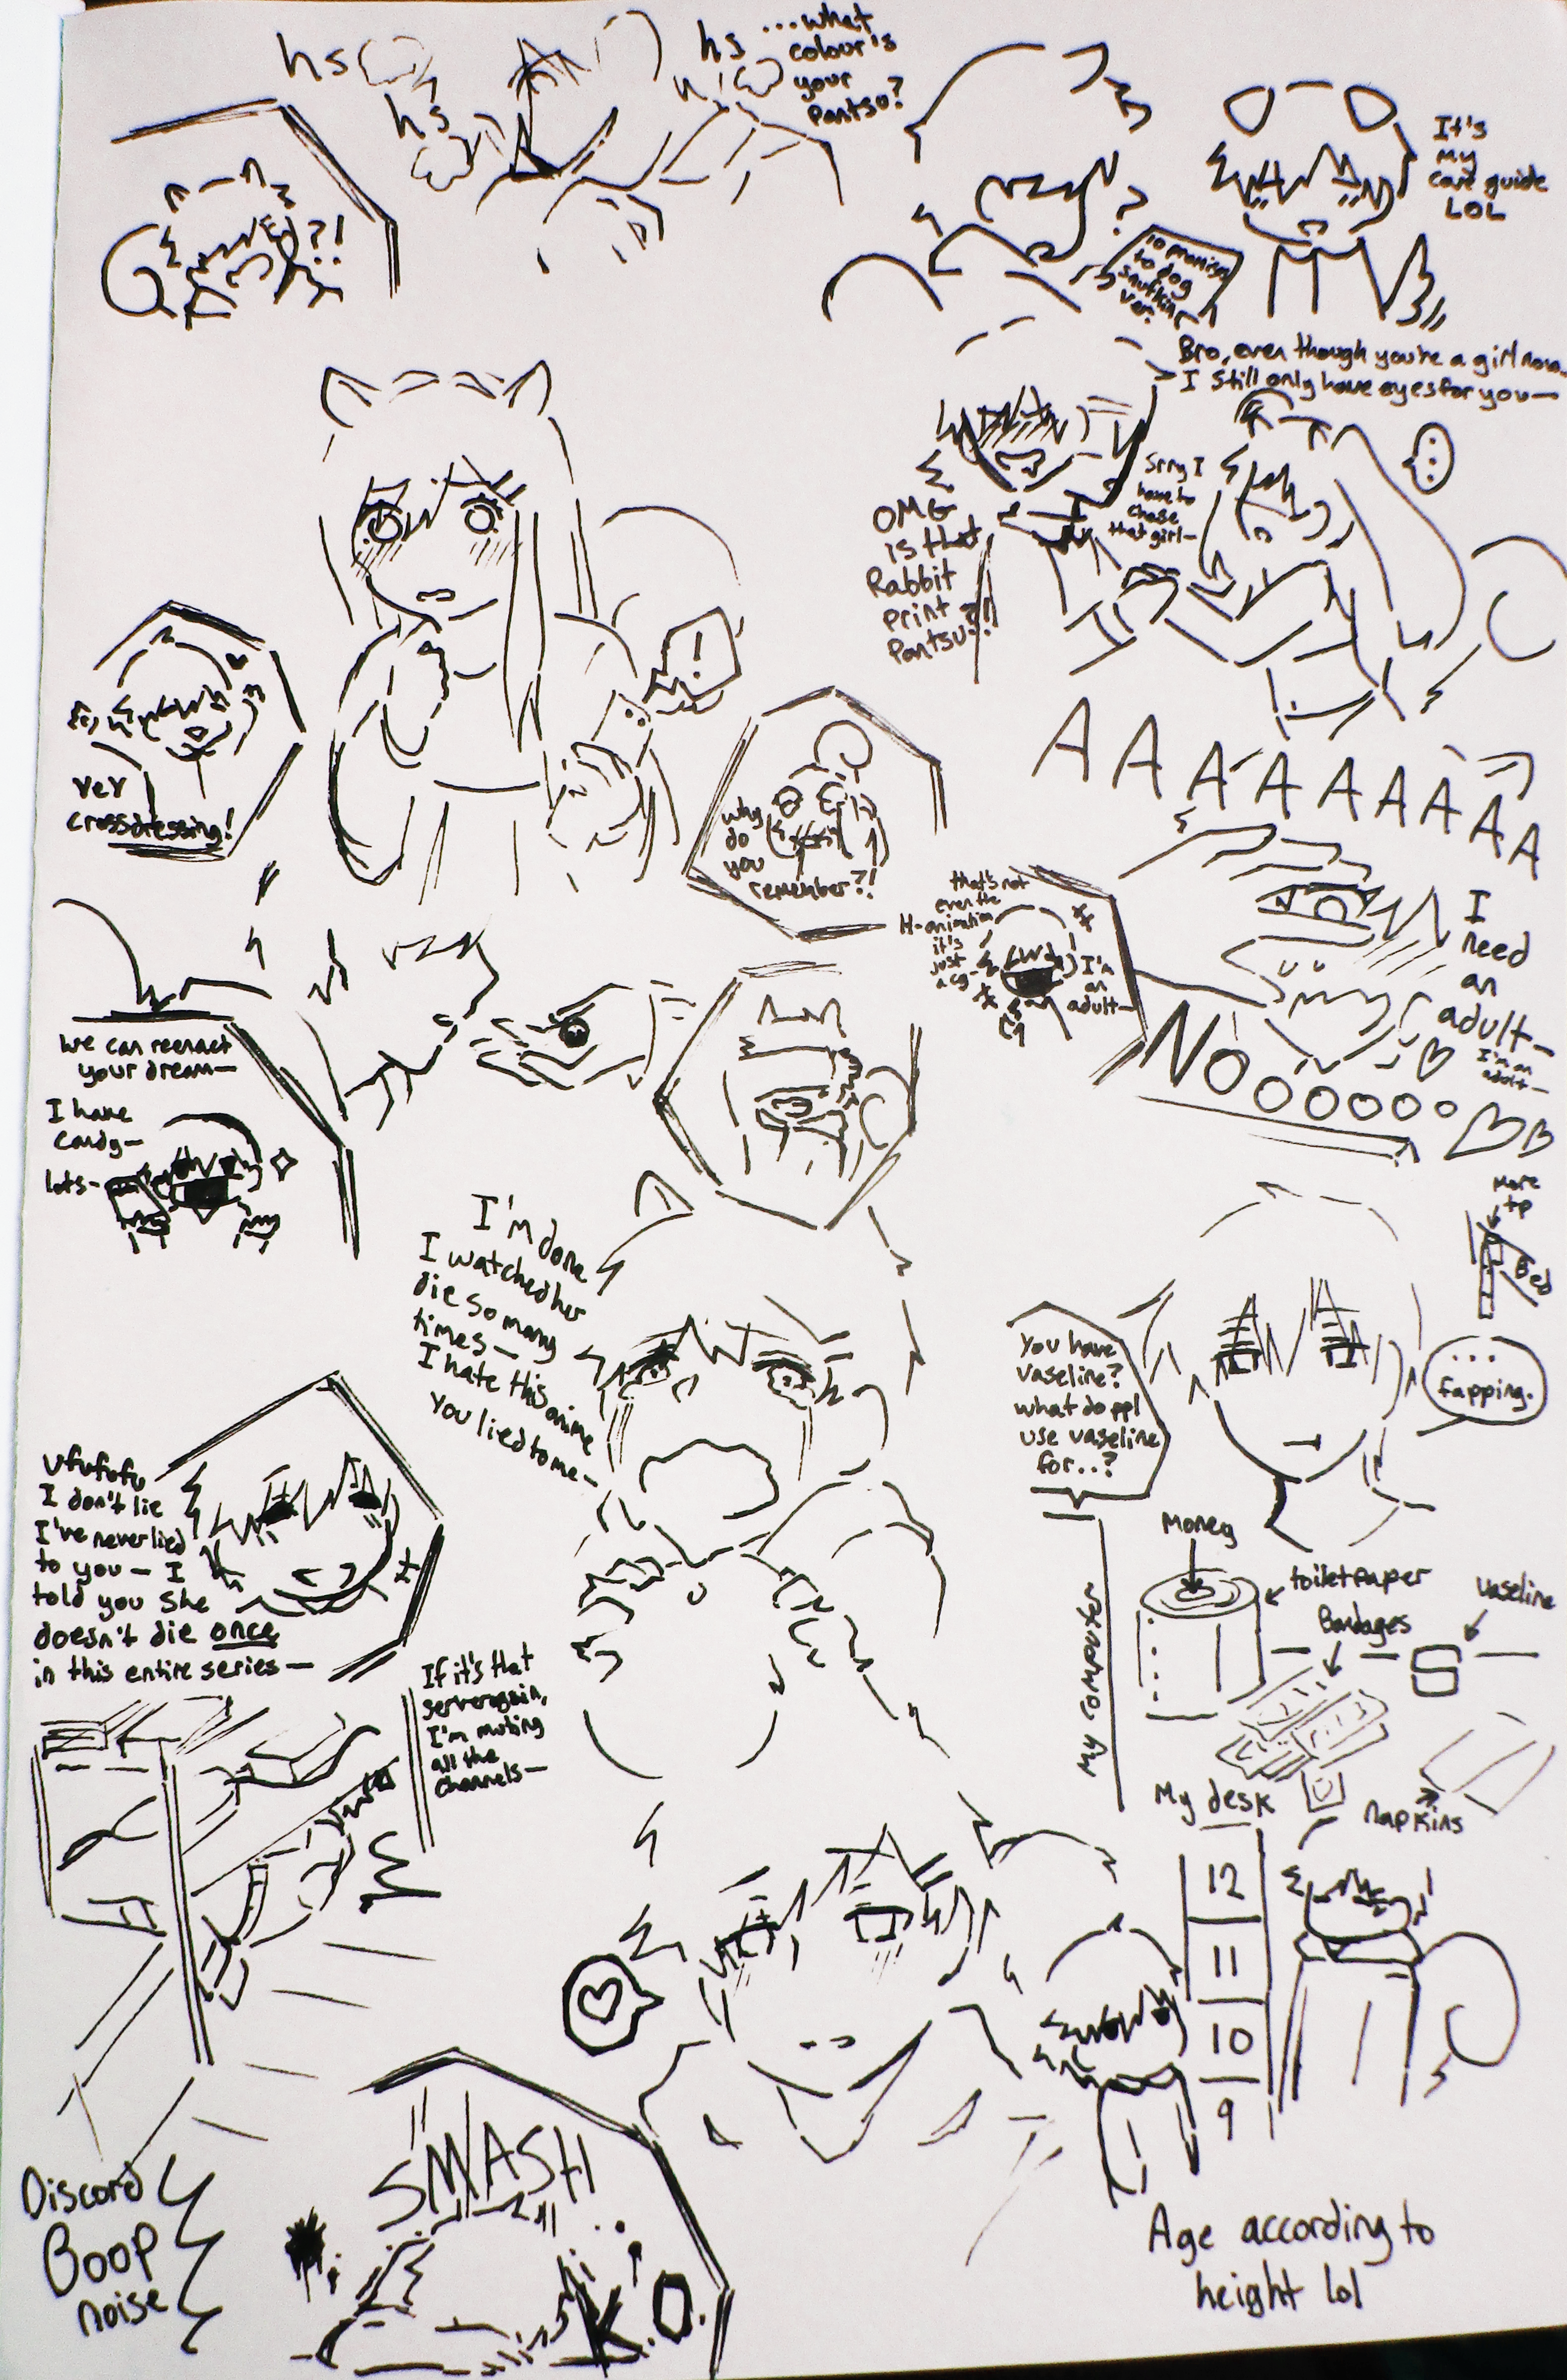 hs
hs
hs
...what
colour's
your
pantsu?
?!
It's
my
care guide
LOL
?
10 
to dog
snufkin
ver.
Bro, even though you're a girl now...
I still only have eyes for you—
...
Srry I
have to
chase
that girl—
OMG
is that
Rabbit
print
Pantsu?!
!
yey
crossdressing!
why
do
you
remember?!
AAAAAAAAA
that's not
even the
H-animation
it's
just
a cg—
I'm
an
adult—
I
need
an
adult—
I'm an
adult—
NOOOOOO
We can reenact
your dream—
I have
candy—
lots—
I'm done
I watched her
die so many
times—
I hate this anime
you lied to me—
More
tp
Bed
You have
vaseline?
what do ppl
use vaseline
for..?
...
fapping.
Money
toiletpaper
Bandages
Vaseline
My computer
My desk
napkins
Ufufufu
I don't lie
I've never lied
to you— I
told you she
doesn't die once
in this entire series—
If it's that
server again,
I'm muting
all the
channels—
12
11
10
9
Age according to
height lol
Discord
Boop
noise
SMASH
K.O.